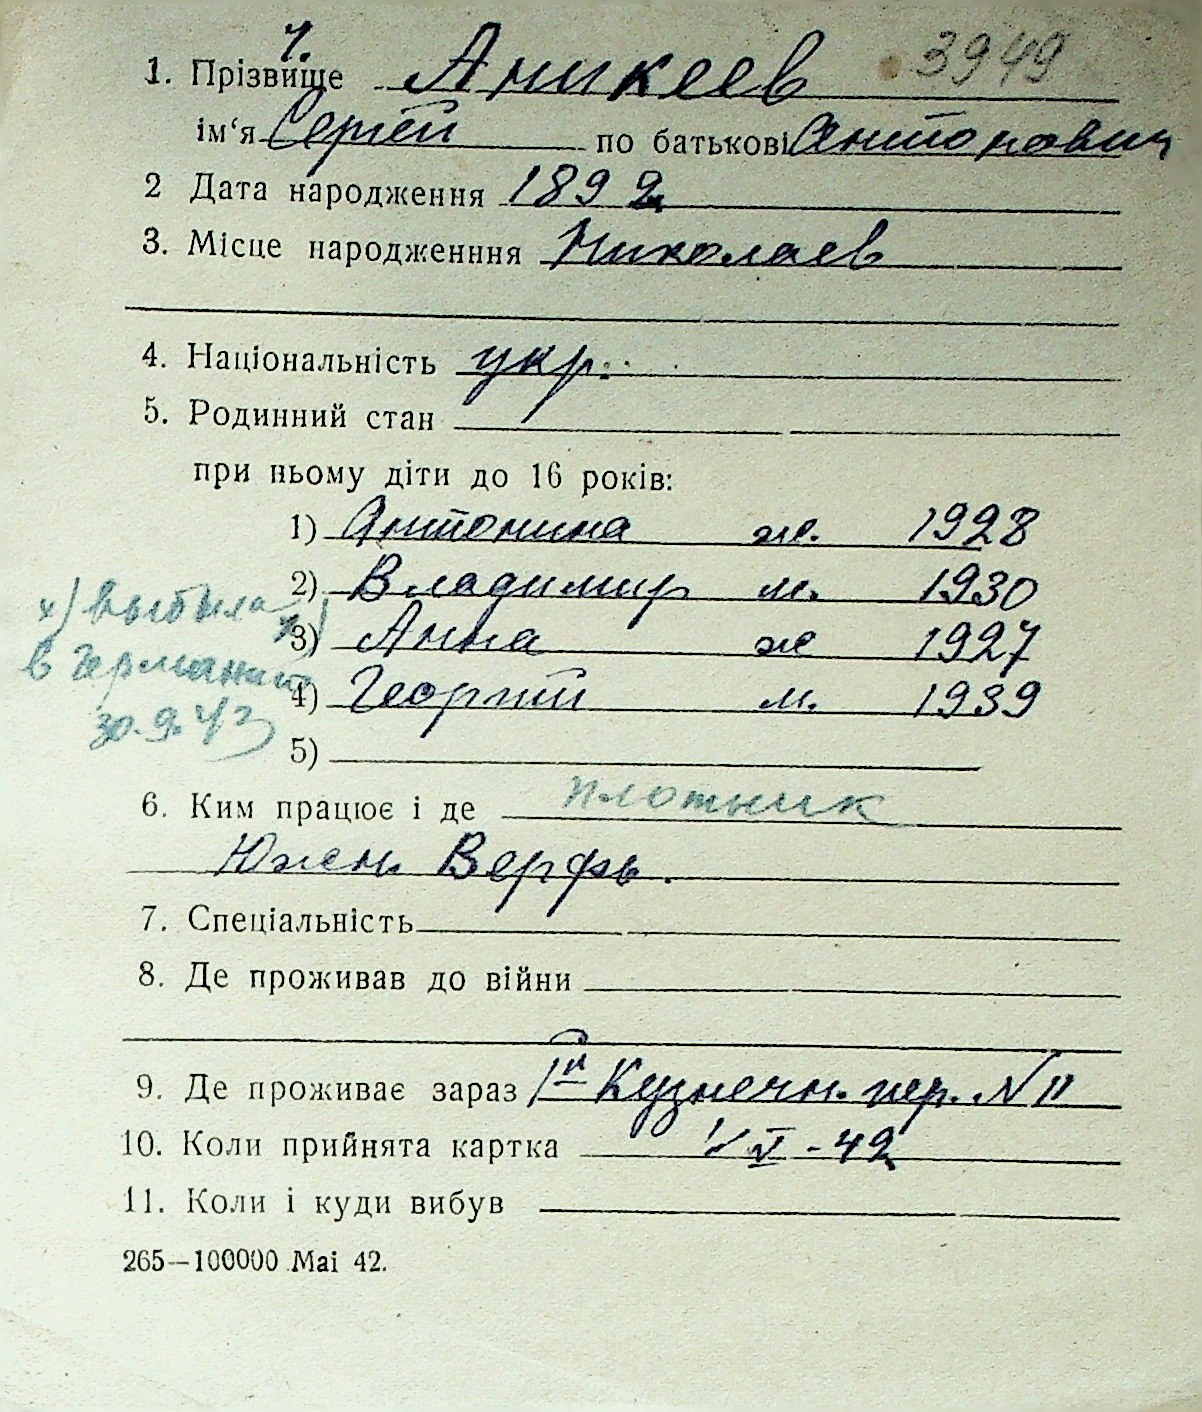 1. Прізвище Аникеев 3949
ім‘я Сергей по батькові Антонович
2 Дата народження 1892
3. Місце народженння Николаев
4. Національність укр.
5. Родинний стан
при ньому діти до 16 років:
1) Антонина ж. 1928
2) Владимир м. 1930
х) выбыла
х) 3) Анна ж 1927
в Германию
4) Георгий м. 1939
30.9.42
5)
6. Ким працює і де плотник
Южн. Верфь.
7. Спеціальність
8. Де проживав до війни
9. Де проживає зараз Iй Кузнечн. пер. № 11
10. Коли прийнята картка VI-42
11. Коли і куди вибув
265—100000 Маі 42.